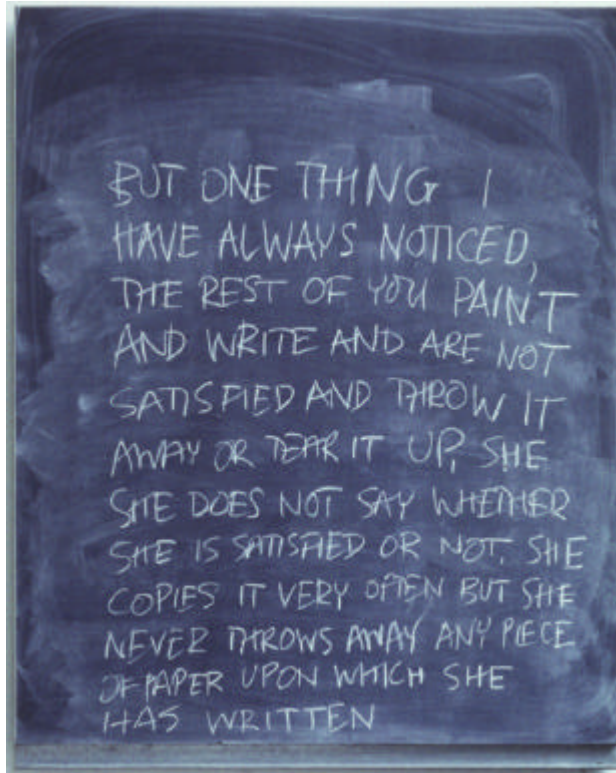 BUT ONE THING I
HAVE ALWAYS NOTICED,
THE REST OF YOU PAINT
AND WRITE AND ARE NOT
SATISFIED AND THROW IT
AWAY OR TEAR IT UP, SHE
SHE DOES NOT SAY WHETHER
SHE IS SATISFIED OR NOT, SHE
COPIES IT VERY OFTEN BUT SHE
NEVER THROWS AWAY ANY PIECE
OF PAPER UPON WHICH SHE
HAS WRITTEN